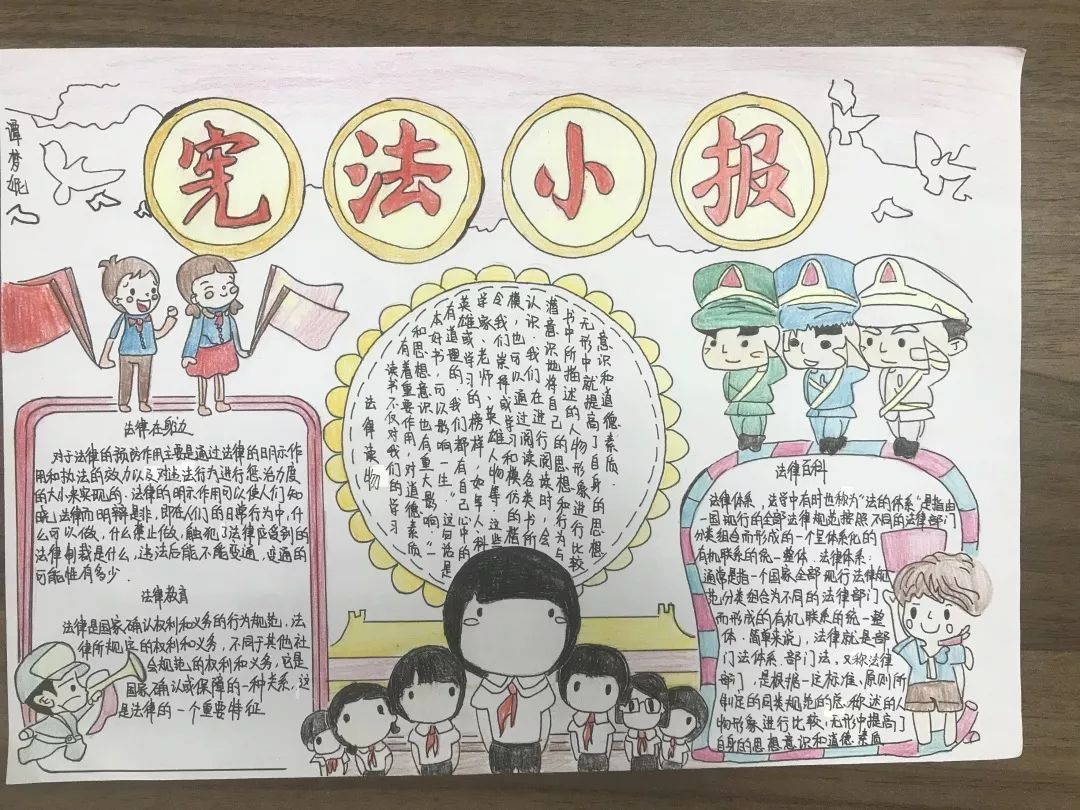 谭梦妮
宪法小报
法律在身边
对于法律的预防作用主要是通过法律的明示作
用和执法的效力以及对违法行为进行惩治力度
的大小来实现的.法律的明示作用可以使人们知
晓法律而明辩是非,即在人们的日常行为中,什
么可以做,什么禁止做,触犯了法律应受到的
法律制裁是什么,违法后能不能变通,变通的
可能性有多少.
法律教育
法律是国家确认权利和义务的行为规范,法
律所规定的权利和义务,不同于其他社
会规范的权利和义务,它是
国家确认或保障的一种关系,这
是法律的一个重要特征
法律读物
读书不仅对我们的学习
有着重要作用,对道德素质
和思想意识也有重大影响."一
本好书,可以影响一生."这句话是
有道理的,我们都有自己心中的
英雄或学习的榜样,如军人、科
学家、老师、英雄人物等,这些
令我们崇拜或学习和模仿的楷
模,也可以通过阅读各类书所
认识.我们在进行阅读时,会
潜意识地将自己的思想和行为与
书中所描述的人物形象进行比较
无形中就提高了自身的思想
意识和道德素质.
法律百科
法律体系,法学中有时也称为"法的体系"是指由
一国现行的全部法律规范按照不同的法律部门
分类组合而形成的一个呈体系化的
有机联系的统一整体.法律体系:
通常是指一个国家全部现行法律规
范分类组合为不同的法律部门
而形成的有机联系的统一整
体.简单来说,法律就是部
门法体系.部门法,又称法律
部门,是根据一定标准、原则所
制定的同类规范的总称述的人
物形象进行比较,无形中提高了
自身的思想意识和道德素质